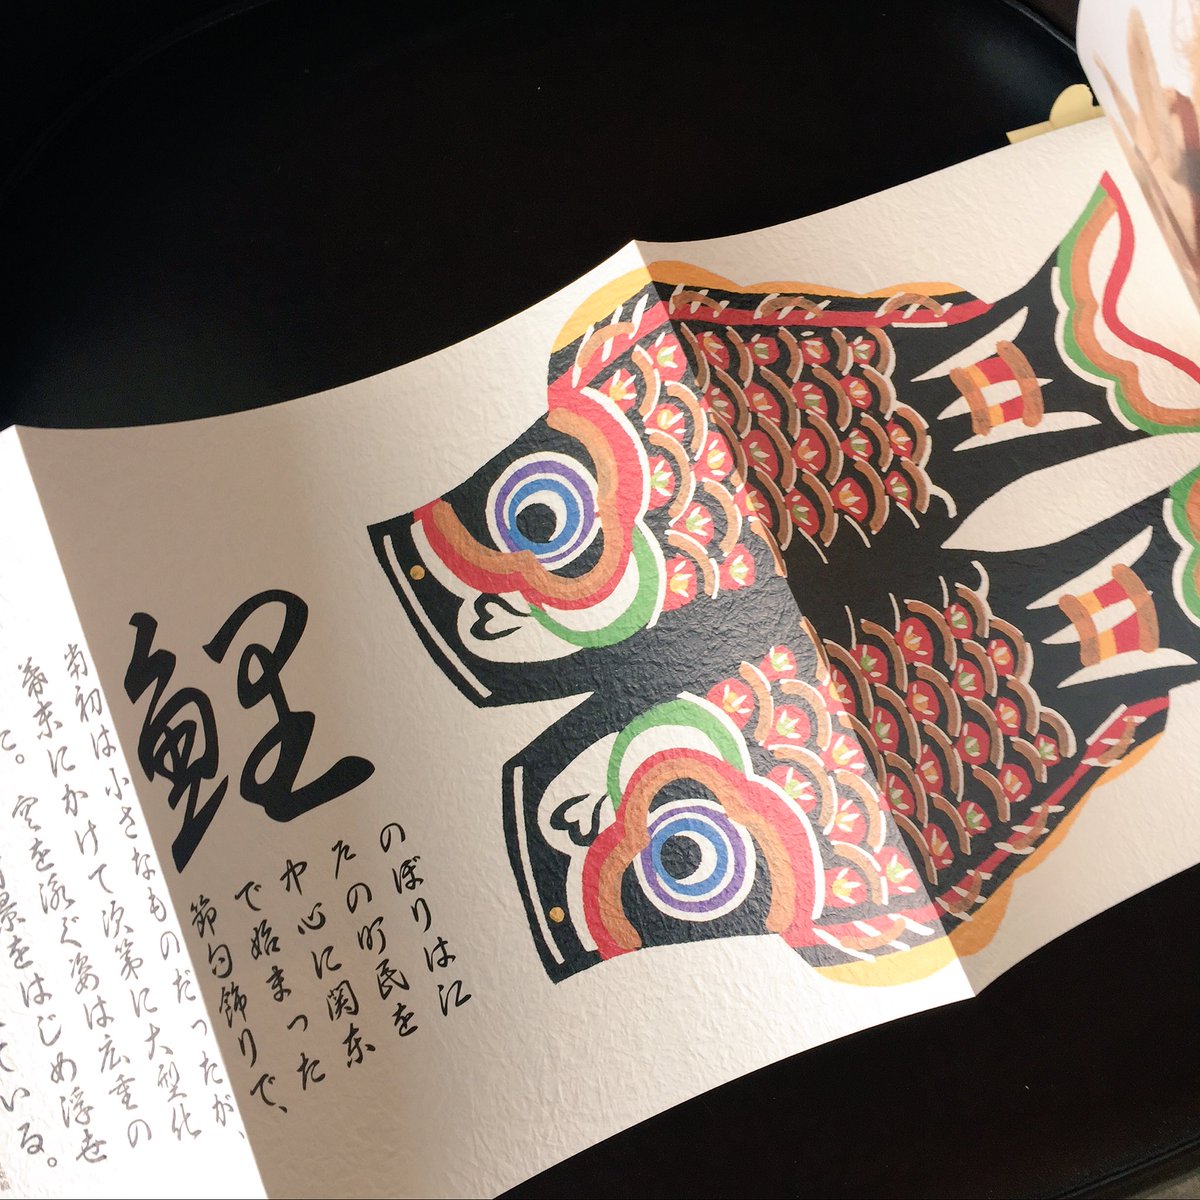 鯉
のぼりは江
戸の町民を
中心に関東
で始まった
節句飾りで、
当初は小さなものだったが、
幕末にかけて次第に大型化
た。空を泳ぐ姿は広重の
景をはじめ浮世
ている。